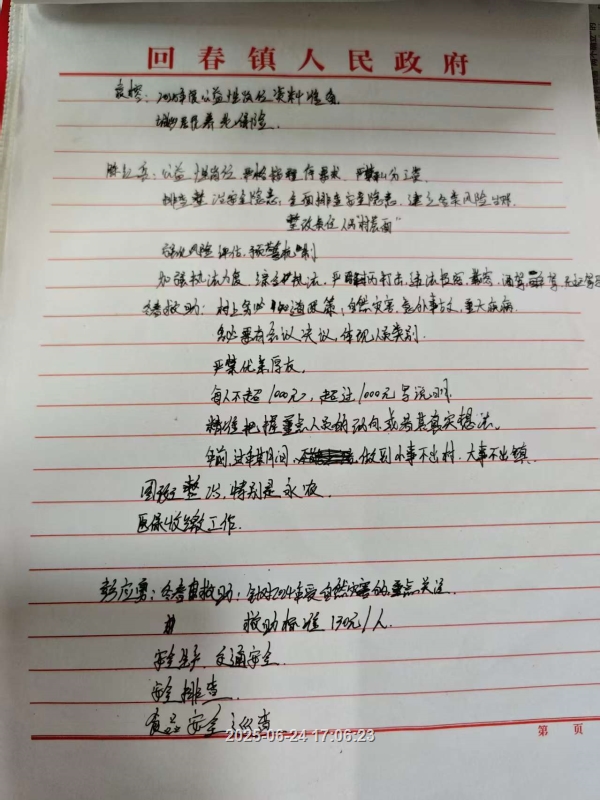 回春镇人民政府
2025年度公益性岗位资料准备
城乡居民养老保险.
公益性岗位 严格按程序要求
排查整治安全隐患，全面排查安全隐患，建立台账风险
整改责任人"村层面"
强化风险评估、预警机制
加强执法力度，综合执法，严厉打击违法
冬春救助：村上务必 知道政策，自然灾害，意外事故，重大疾病
务必要有会议决议，体现人员类别.
严禁优亲厚友.
每人不超1000元，超过1000元写说明
精准把握重点人员的动向或者其真实想法。
年前 期间 做到小事不出村，大事不出镇.
特别是
医保收缴工作.
彭应勇：冬春救助：针对2024年受自然灾害的重点关注
救助标准 130元/人.
安全生产 交通安全.
安全排查
食品安全巡查
第 页
2025-06-24 17:06:23